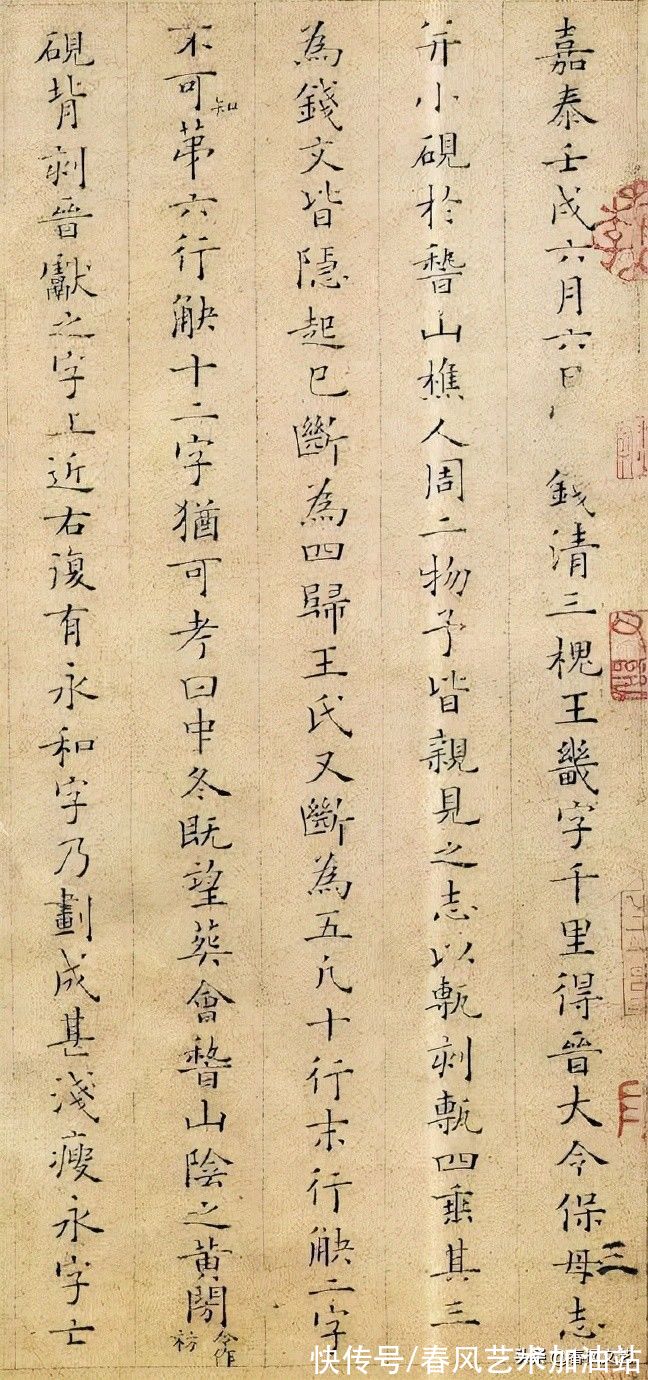 嘉泰壬戌六月六日 錢清三槐王畿字千里得晉大令保母志
并小硯於稽山樵人周二物予皆親見之志以甎刻甎四垂其三
為錢文皆隱起已斷為四歸王氏又斷為五凡十行末行缺二字
不可知第六行缺十二字猶可考曰中冬既望葬會稽山陰之黃閍
今作祊
硯背刻晉獻之字上近右復有永和字乃劃成甚淺瘦永字亡
三
快传号/春风艺术加油站